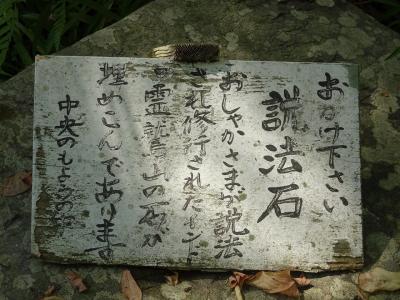 おかけ下さい
説法石
おしゃかさまが説法
され修行されたインド
霊鷲山の石が
埋めこんであります
中央のもようの